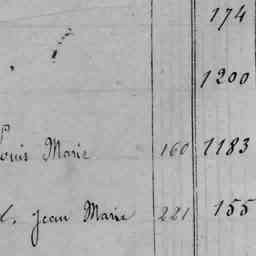 174
1200
Louis Marie 160 1183
Jean Marie 221 155